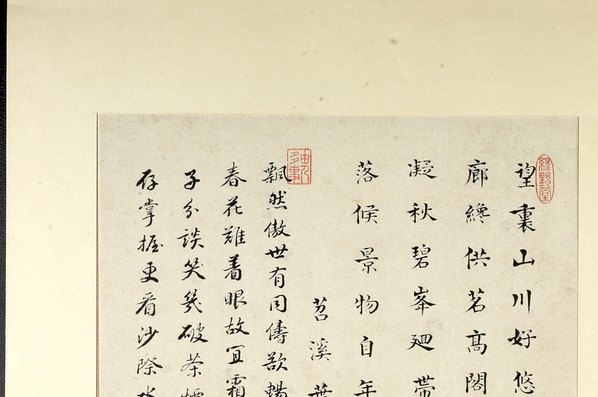 望裏山川好悠
廊纔供茗高閣
凝秋碧峯廻帶
落候景物自年
苕溪
飄然傲世有同傳歌
春花難着眼故宜霜
子分談笑幾破茶煙
存掌握更看沙際水